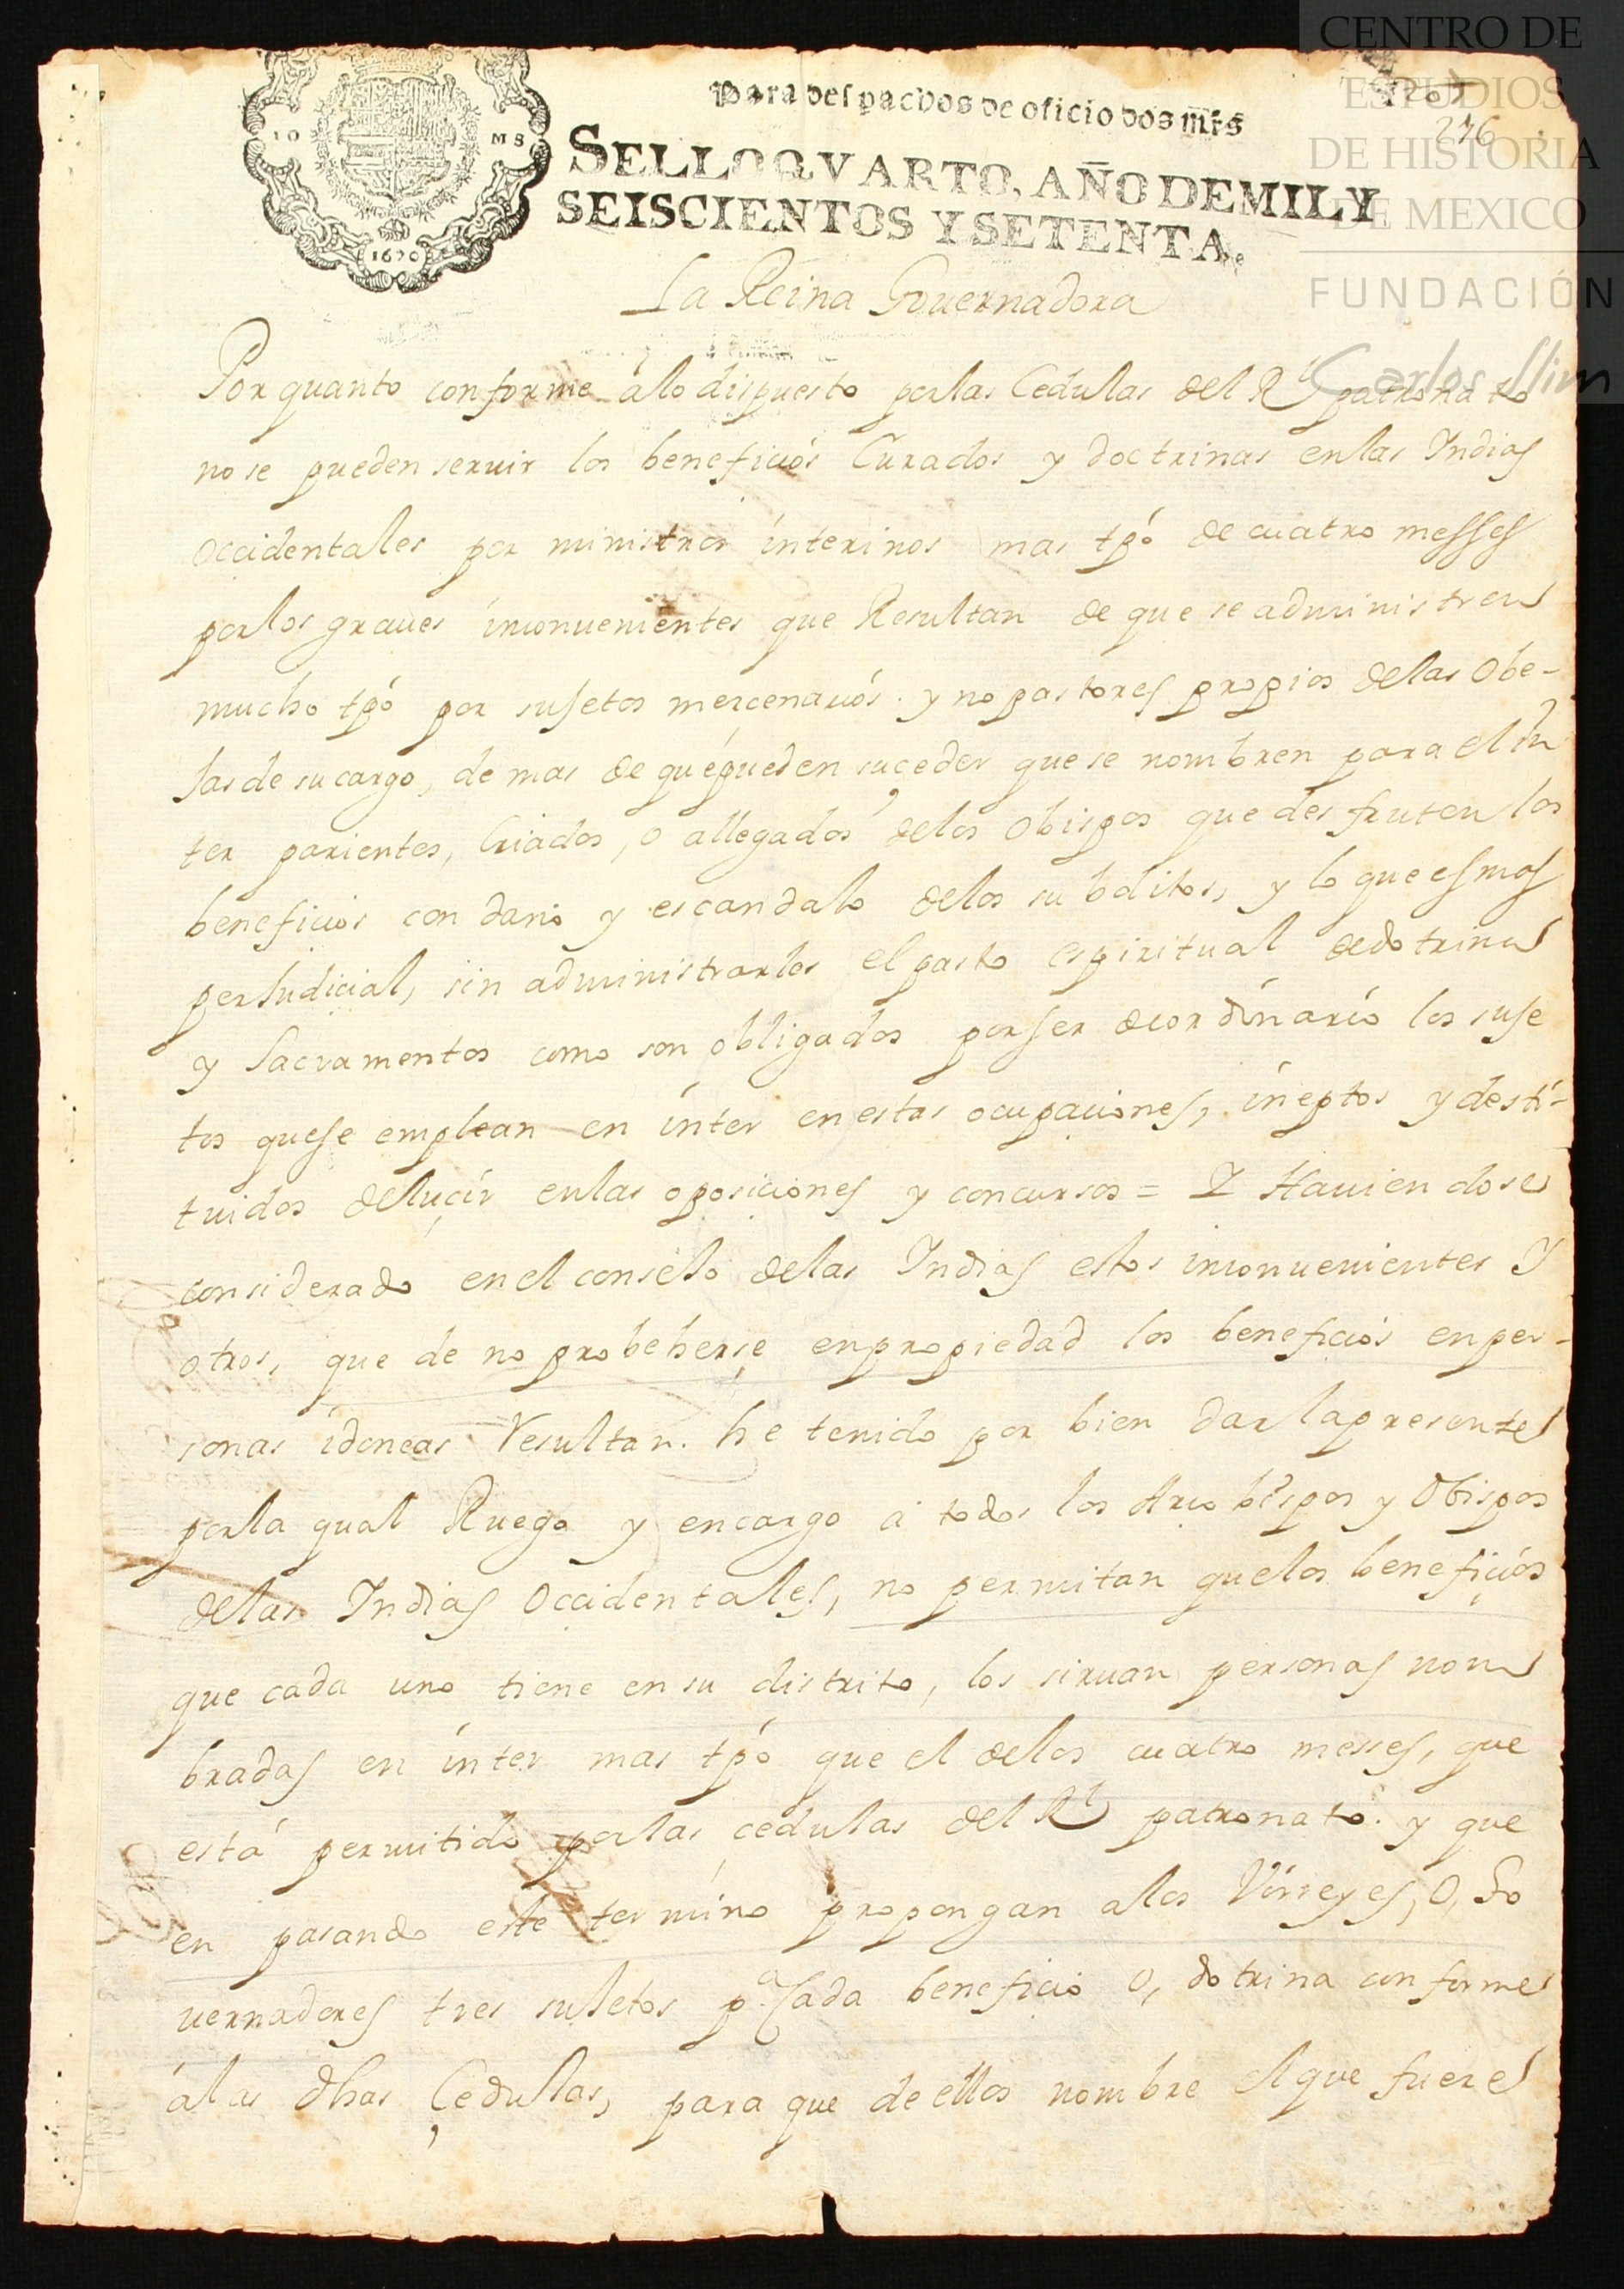 CENTRO DE
ESTUDIOS
DE HISTORIA
DE MEXICO
FUNDACIÓN
Carlos Slim
276
10 MS
1670
Para despachos de oficio dos mrs
SELLO QVARTO, AÑO DE MIL Y
SEISCIENTOS Y SETENTA.
La Reina Gouernadora
Por quanto conforme á lo dispuesto por las Cedulas del Rl patronato
no se pueden seruir los beneficiós Curados y doctrinas en las Indias
Occidentales por ministros ínterinos mas tpó de cuatro messes
por los graues ínconuenientes que Resultan de que se administren
mucho tpó por sujetos mercenariós. y no pastores propios de las Obe-
Jas de su cargo, de mas de que pueden suçeder que se nombren para el In
ter parientes, Criados, o allegados de los Obispos que desfruten los
beneficios con daño y escandalo de los subditos, y lo que es mas
perJudicial, sin administrarlos el pasto espiritual de dotrina
y Sacramentos como son obligados por ser de ordínarío los suje
tos que se emplean en ínter en estas ocupaciones, íneptos y destí-
tuidos de luçír en las oposiciones y concursos = Y Hauiendose
considerado en el conseJo de las Indias estos inconuenientes Y
otros, que de no probeherse en propiedad los beneficiós en per-
sonas ídoneas Resultan. he tenido por bien dar la presente
por la qual Ruego y encargo á todos los Arçobispos y Obispos
de las Indias Occidentales, no permitan que los beneficiós
que cada uno tiene en su distrito, los siruan personas nom
bradas en ínter mas tpó que el de los cuatro messes, que
está permitido por las çedulas del Rl patronato. y que
en pasando este termíno propongan a los Vírreyes, O, Go
uernadores tres suJetos pa Cada beneficio O, dotrina conforme
á las dhas Çedullas, para que de ellos nombre el que fuere